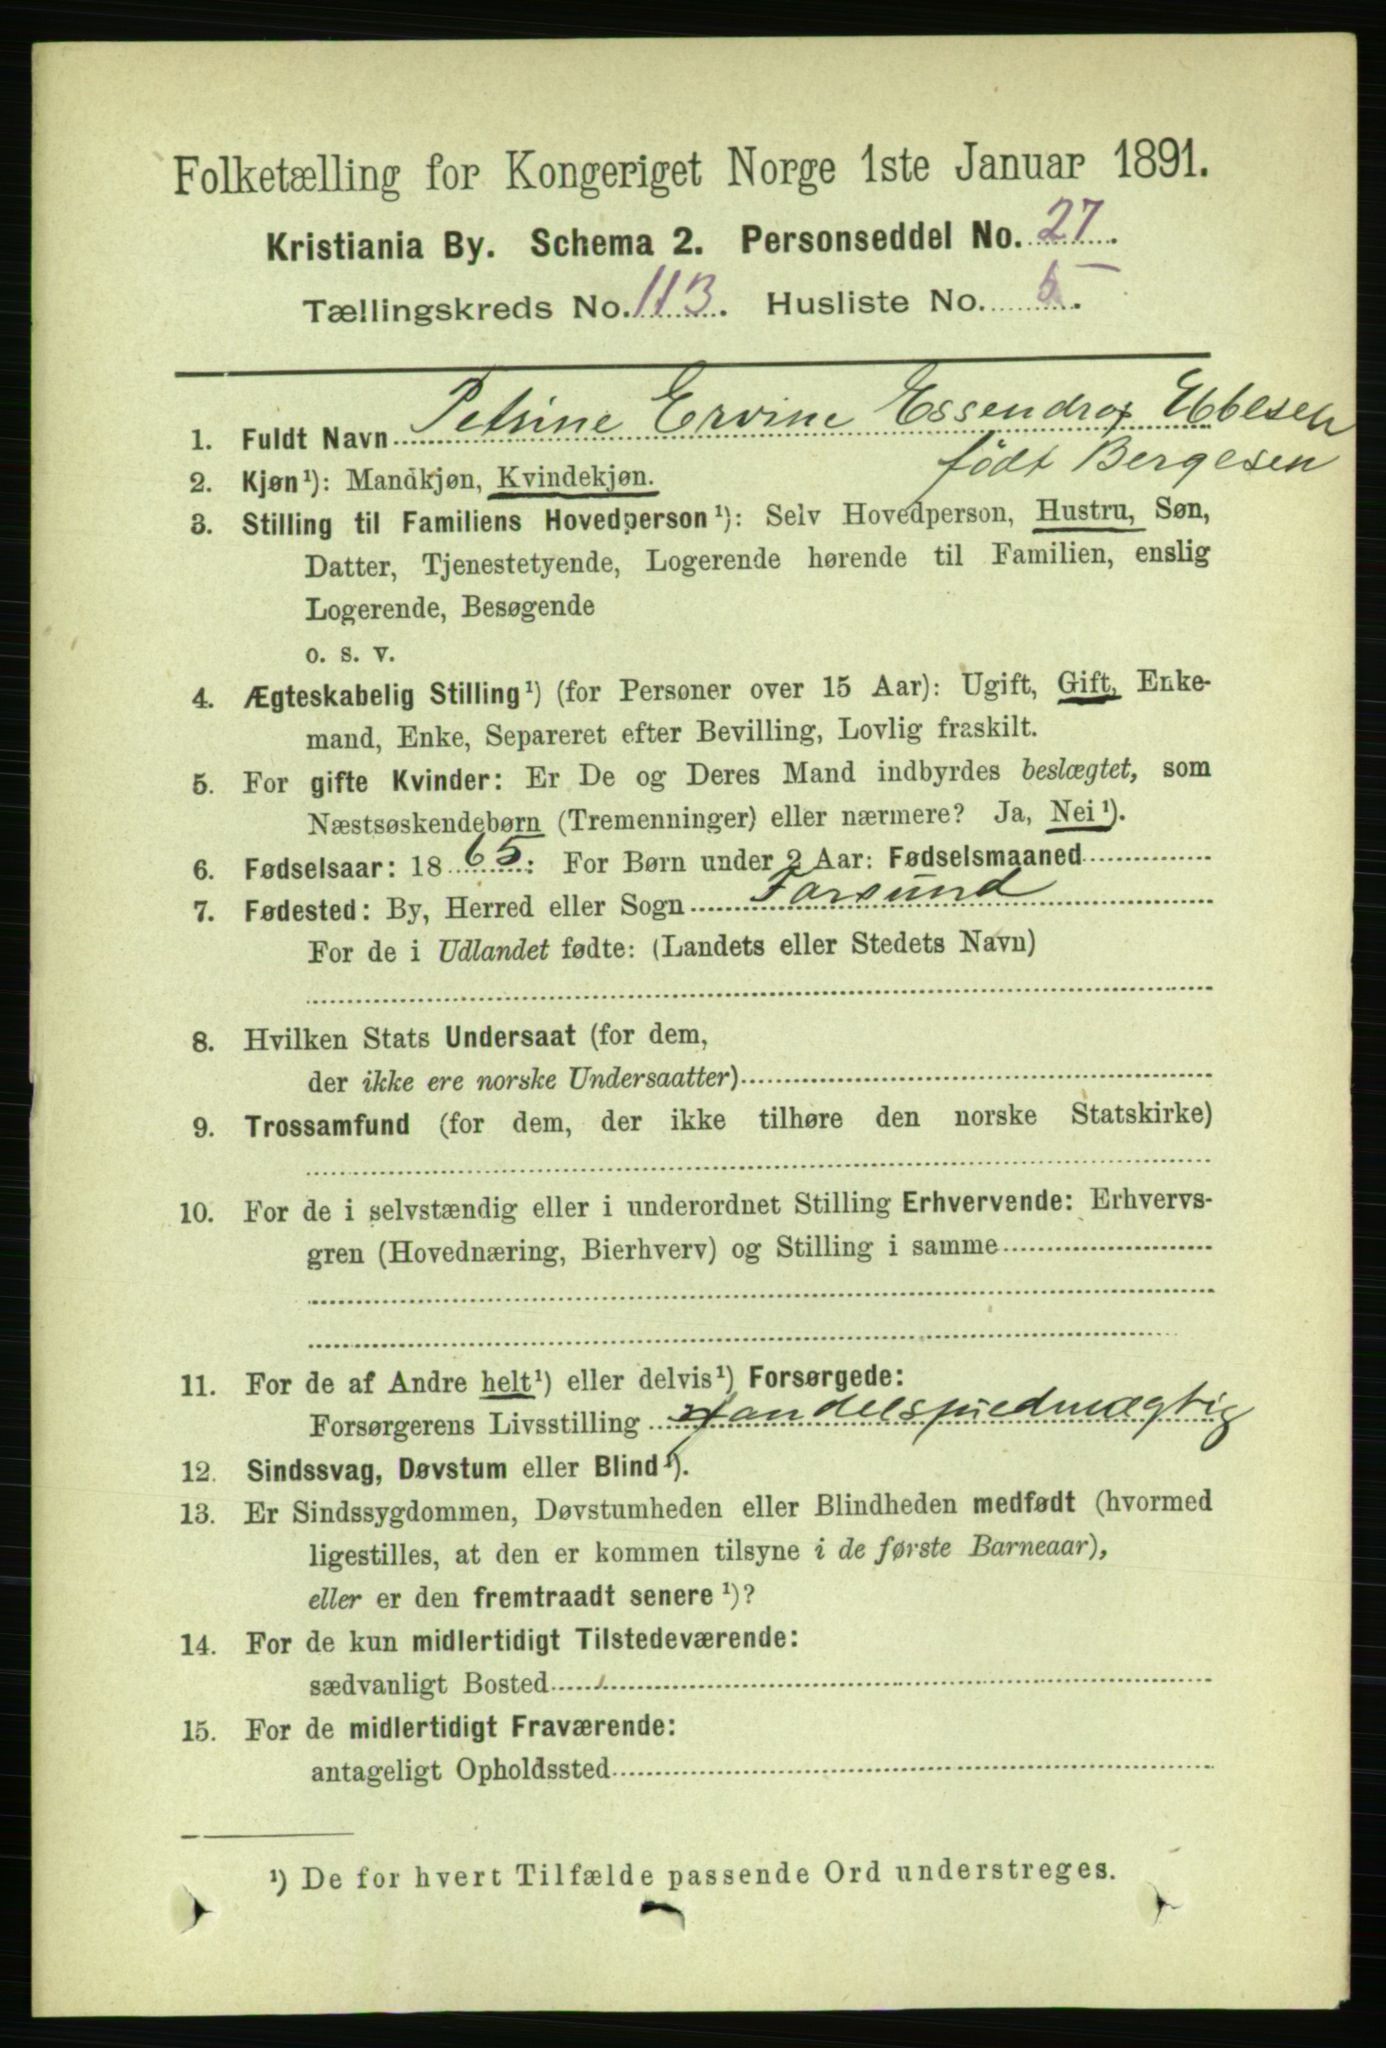 Folketælling for Kongeriget Norge 1ste Januar 1891.
Kristiania By. Schema 2. Personseddel No. 27.
Tællingskreds No. 113. Husliste No. 5.
1. Fuldt Navn Petrine Ervine Essendrop Ebbesen
født Bergesen
2. Kjøn¹): Mandkjøn, Kvindekjøn.
3. Stilling til Familiens Hovedperson¹): Selv Hovedperson, Hustru, Søn,
Datter, Tjenestetyende, Logerende hørende til Familien, enslig
Logerende, Besøgende
o. s. v.
4. Ægteskabelig Stilling¹) (for Personer over 15 Aar): Ugift, Gift, Enke-
mand, Enke, Separeret efter Bevilling, Lovlig fraskilt.
5. For gifte Kvinder: Er De og Deres Mand indbyrdes beslægtet, som
Næstsøskendebørn (Tremenninger) eller nærmere? Ja, Nei¹).
6. Fødselsaar: 1865: For Børn under 2 Aar: Fødselsmaaned
7. Fødested: By, Herred eller Sogn Farsund
For de i Udlandet fødte: (Landets eller Stedets Navn)
8. Hvilken Stats Undersaat (for dem,
der ikke ere norske Undersaatter)
9. Trossamfund (for dem, der ikke tilhøre den norske Statskirke)
10. For de i selvstændig eller i underordnet Stilling Erhvervende: Erhvervs-
gren (Hovednæring, Bierhverv) og Stilling i samme
11. For de af Andre helt¹) eller delvis¹) Forsørgede:
Forsørgerens Livsstilling Handelsfuldmægtig
12. Sindssvag, Døvstum eller Blind¹).
13. Er Sindssygdommen, Døvstumheden eller Blindheden medfødt (hvormed
ligestilles, at den er kommen tilsyne i de første Barneaar),
eller er den fremtraadt senere¹)?
14. For de kun midlertidigt Tilstedeværende:
sædvanligt Bosted
15. For de midlertidigt Fraværende:
antageligt Opholdssted
¹) De for hvert Tilfælde passende Ord understreges.